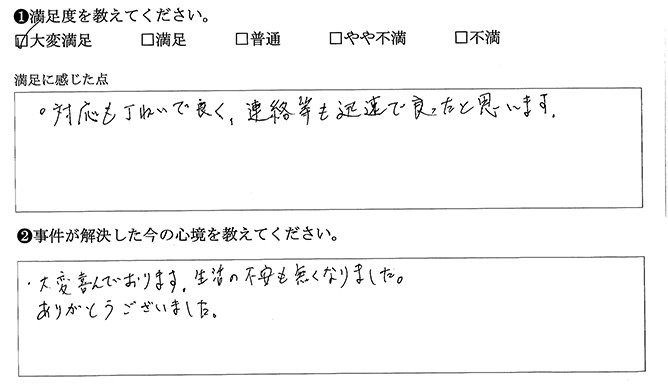 ❶満足度を教えてください。
☑大変満足 □満足 □普通 □やや不満 □不満
満足に感じた点
○対応も丁ねいで良く、連絡等も迅速で良ったと思います。
❷事件が解決した今の心境を教えてください。
・大変喜んでおります。生活の不安も無くなりました。
ありがとうございました。